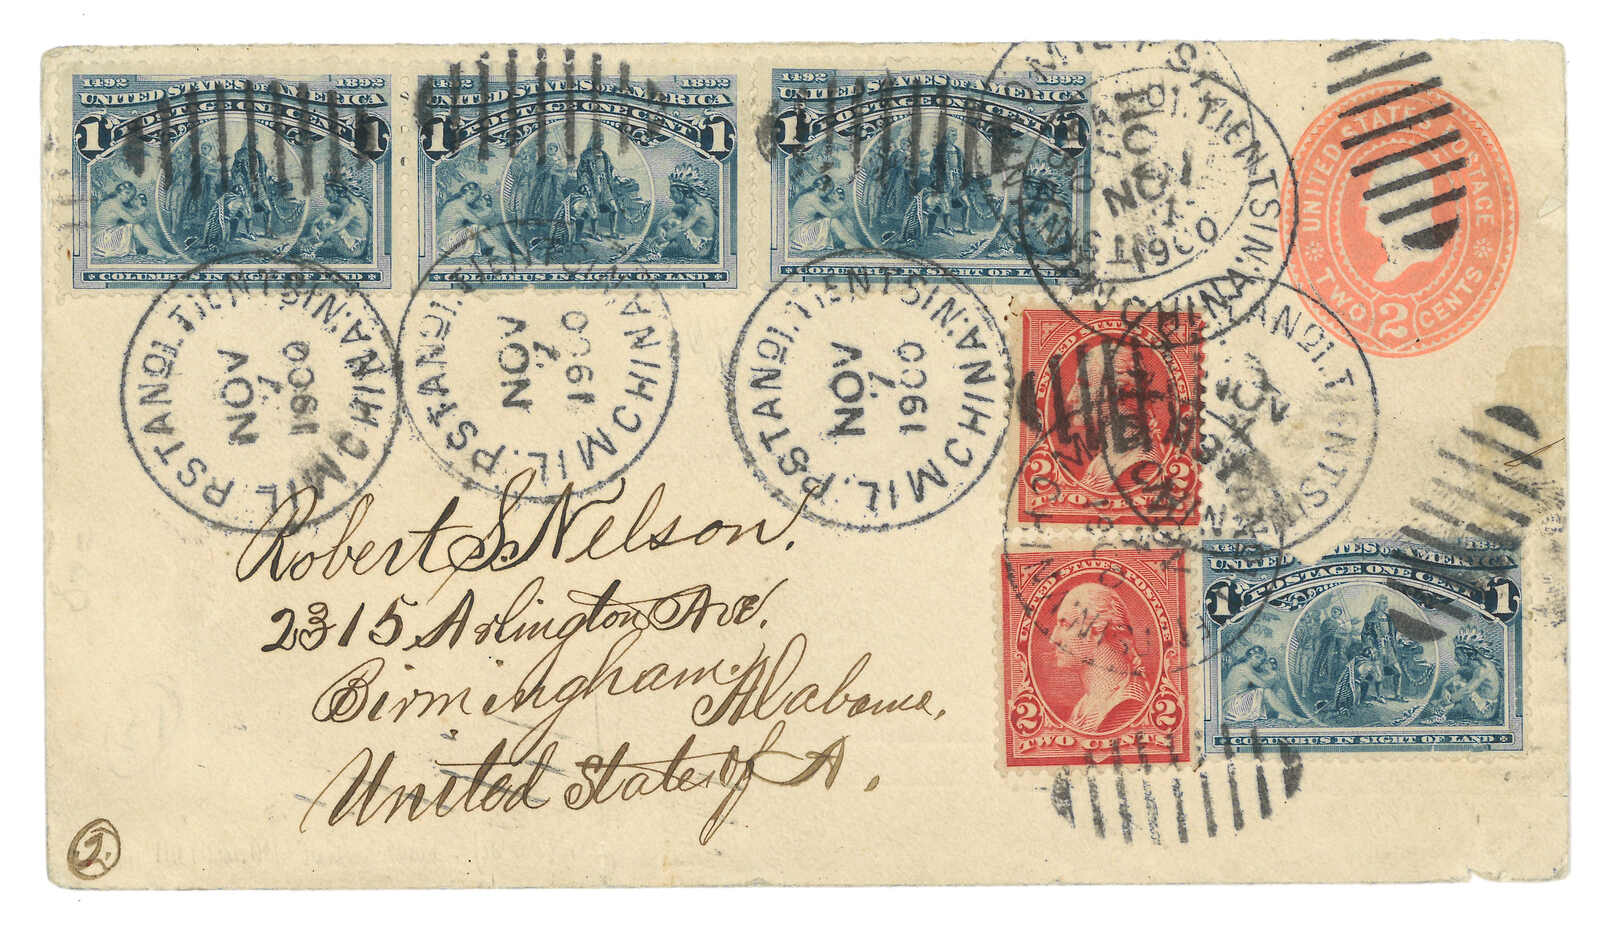 1492 1892
UNITED STATES OF AMERICA
POSTAGE ONE CENT
1 1
COLUMBUS IN SIGHT OF LAND
1492 1892
UNITED STATES OF AMERICA
POSTAGE ONE CENT
1 1
COLUMBUS IN SIGHT OF LAND
1492 1892
UNITED STATES OF AMERICA
POSTAGE ONE CENT
1 1
COLUMBUS IN SIGHT OF LAND
UNITED STATES POSTAGE
TWO 2 CENTS
MIL. P. STA. No1. TIENTSIN. CHINA.
NOV
1
1900
MIL. P. STA No1. TIENTSIN. CHINA.
NOV
7
1900
MIL. P. STA No1. TIENTSIN. CHINA.
NOV
7
1900
MIL. P. STA No1. TIENTSIN. CHINA.
NOV
7
1900
STA No1. TIENTSIN
NOV
UNITED STATES POSTAGE
2 2
TWO CENTS
UNITED STATES POSTAGE
2 2
TWO CENTS
1492 1892
UNITED STATES OF AMERICA
POSTAGE ONE CENT
1 1
COLUMBUS IN SIGHT OF LAND
Robert S. Nelson.
2315 Arlington Ave.
Birmingham. Alabama.
United States of A.
2.